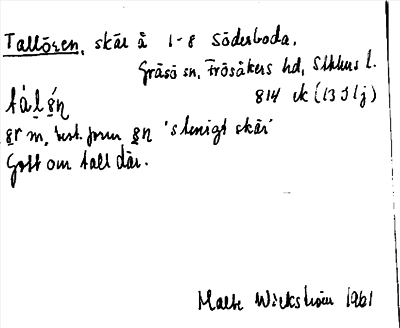 Tallören, skär å 1-8 Söderboda,
Gräsö sn, Frösåkers hd, Sthlms l.
814 ek (13 I 1j)
tálǿn
ør m, best. form øn 'stenigt skär'
Gott om tall där.
Malte Wickström 1961